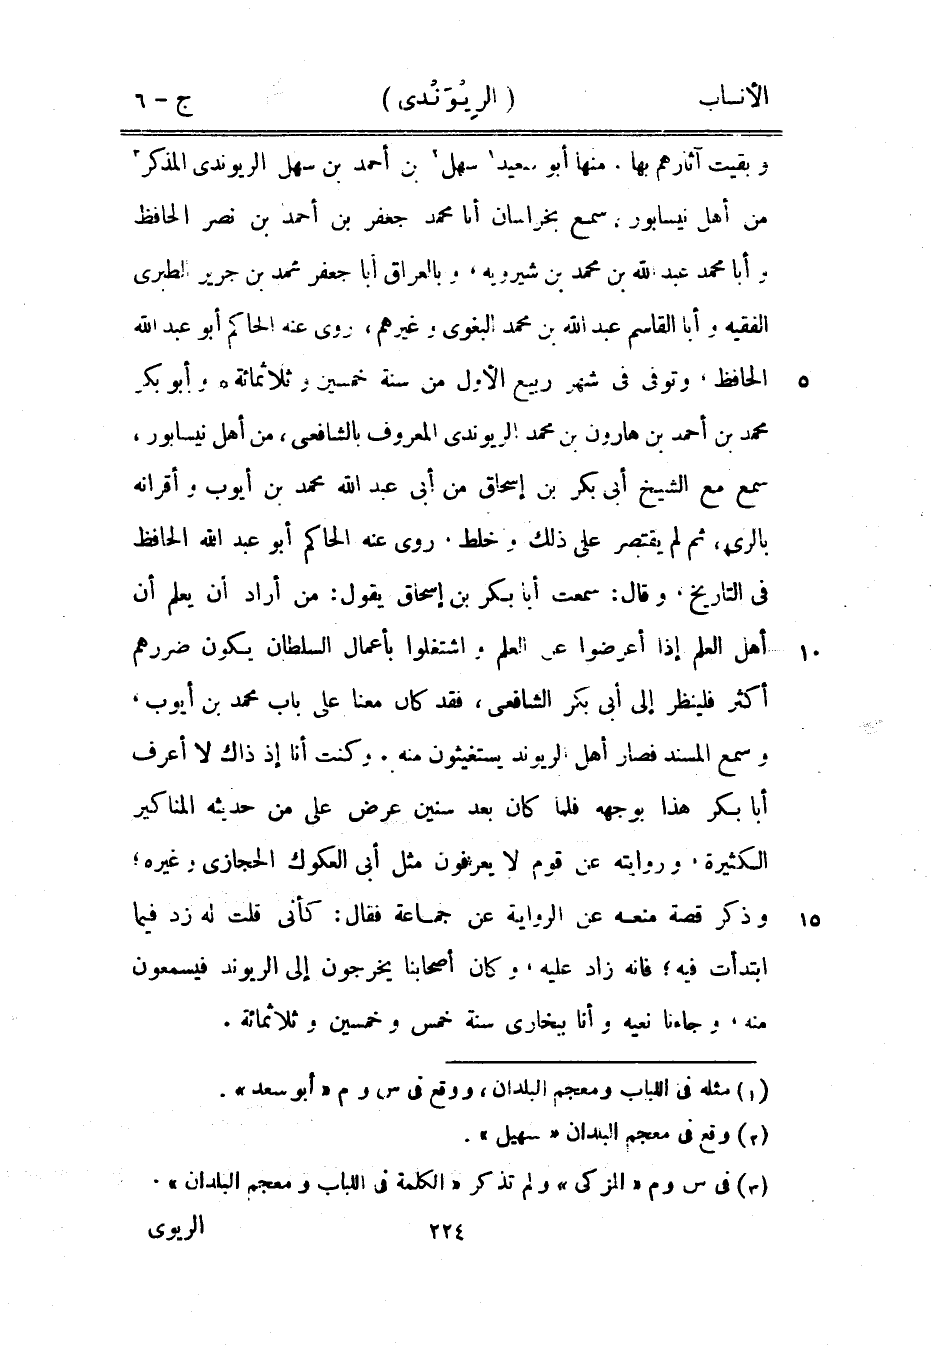 الأنساب (الرِيْوَنْدى) ج - ٦
و بقيت آثارهم بها . منها أبو سعيد١ سهل٢ بن أحمد بن سهل الريوندى المذكر٣
من أهل نيسابور، سمع بخراسان أبا محمد جعفر بن أحمد بن نصر الحافظ
و أبا محمد عبد الله بن محمد بن شيرويه، و بالعراق أبا جعفر محمد بن جرير الطبرى
الفقيه و أبا القاسم عبد الله بن محمد البغوى و غيرهم، روى عنه الحاكم أبو عبد الله
الحافظ، وتوفى فى شهر ربيع الأول من سنة خمسين و ثلاثمائة ه و أبو بكر ٥
محمد بن أحمد بن هارون بن محمد الريوندى المعروف بالشافعى، من أهل نيسابور،
سمع مع الشيخ أبى بكر بن إسحاق من أبى عبد الله محمد بن أيوب و أقرانه
بالرى، ثم لم يقتصر على ذلك و خلط، روى عنه الحاكم أبو عبد الله الحافظ
فى التاريخ، و قال: سمعت أبا بكر بن إسحاق يقول: من أراد أن يعلم أن
أهل العلم إذا أعرضوا عن العلم و اشتغلوا بأعمال السلطان يكون ضررهم ١٠
أكثر فلينظر إلى أبى بكر الشافعى، فقد كان معنا على باب محمد بن أيوب،
و سمع المسند فصار أهل الريوند يستغيثون منه . وكنت أنا إذ ذاك لا أعرف
أبا بكر هذا بوجهه فلما كان بعد سنين عرض على من حديثه المناكير
الكثيرة، و روايته عن قوم لا يعرفون مثل أبى العكوك الحجازى و غيره؛
و ذكر قصة منعه عن الرواية عن جماعة فقال: كأنى قلت له زد فيما ١٥
ابتدأت فيه؛ فانه زاد عليه، و كان أصحابنا يخرجون إلى الريوند فيسمعون
منه، و جاءنا نعيه و أنا ببخارى سنة خمس و خمسين و ثلاثمائة .
(١) مثله فى اللباب ومعجم البلدان، ووقع فى س و م « أبو سعد » .
(٢) وقع فى معجم البلدان « سهيل » .
(٣) فى س و م « المزكى » و لم تذكر « الكلمة فى اللباب و معجم البلدان » .
٢٢٤ الريوى